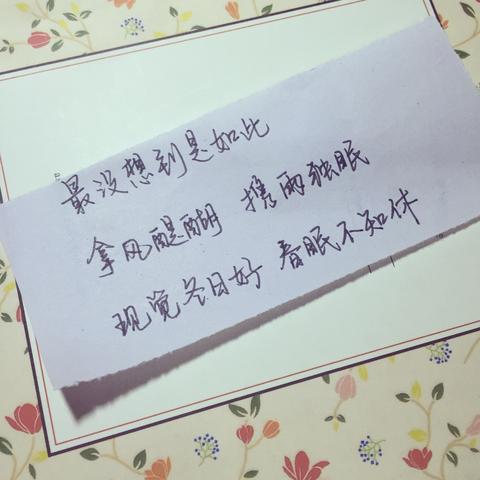 最没想到是如此
拿风醍醐 携雨独眠
现觉冬日好 春眠不知休